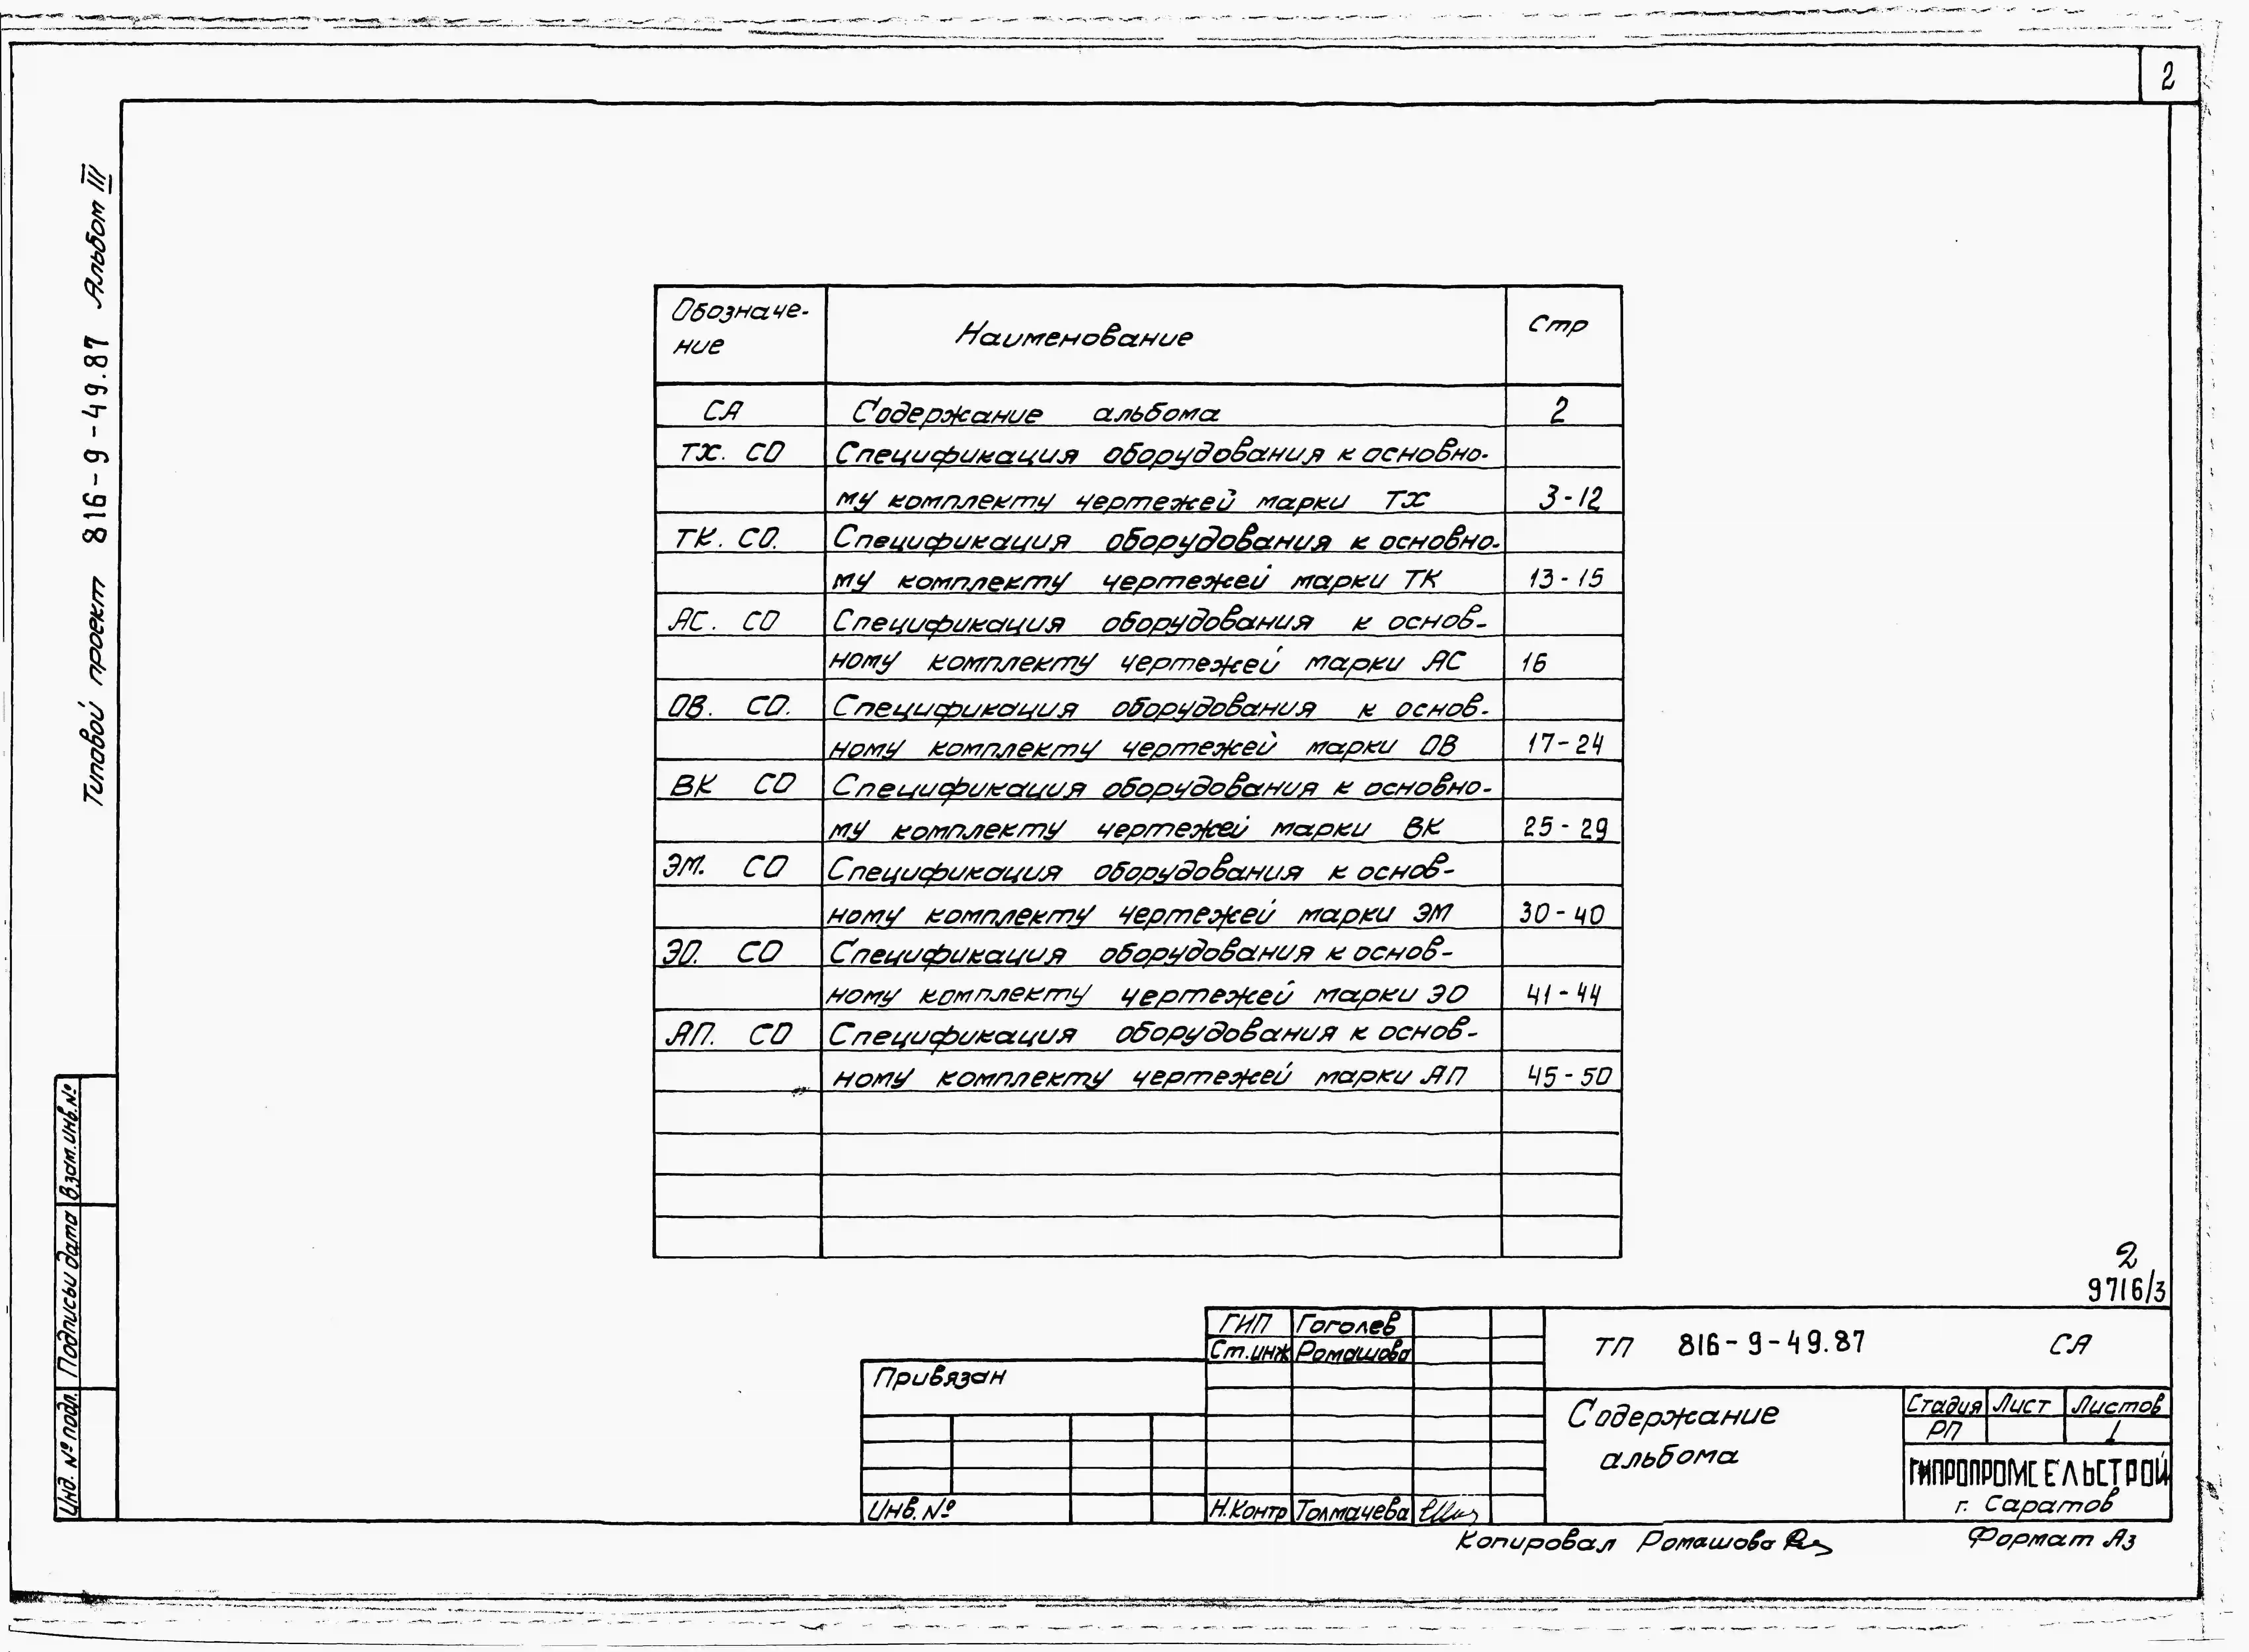 2
Типовой проект 816-9-49.87 Альбом III
Обозначе- Наименование Стр
ние
СА Содержание альбома 2
ТХ. СО Спецификация оборудования к основно-
му комплекту чертежей марки ТХ 3-12
ТК. СО. Спецификация оборудования к основно-
му комплекту чертежей марки ТК 13-15
АС. СО Спецификация оборудования к основ-
ному комплекту чертежей марки АС 16
ОВ. СО. Спецификация оборудования к основ-
ному комплекту чертежей марки ОВ 17-24
ВК СО Спецификация оборудования к основно-
му комплекту чертежей марки ВК 25-29
ЭМ. СО Спецификация оборудования к основ-
ному комплекту чертежей марки ЭМ 30-40
ЭО. СО Спецификация оборудования к основ-
ному комплекту чертежей марки ЭО 41-44
АП. СО Спецификация оборудования к основ-
ному комплекту чертежей марки АП 45-50
Взам.инв.№
Подпись и дата
Инв. № подл.
2
9716/3
ГИП Гоголев
Ст.инж Ромашова
ТП 816-9-49.87 СА
Привязан
Содержание
альбома
Стадия Лист Листов
РП 1
ГИПРОПРОМСЕЛЬСТРОЙ
г. Саратов
Инв. №
Н.Контр Толмачева
Копировал Ромашова Формат А3